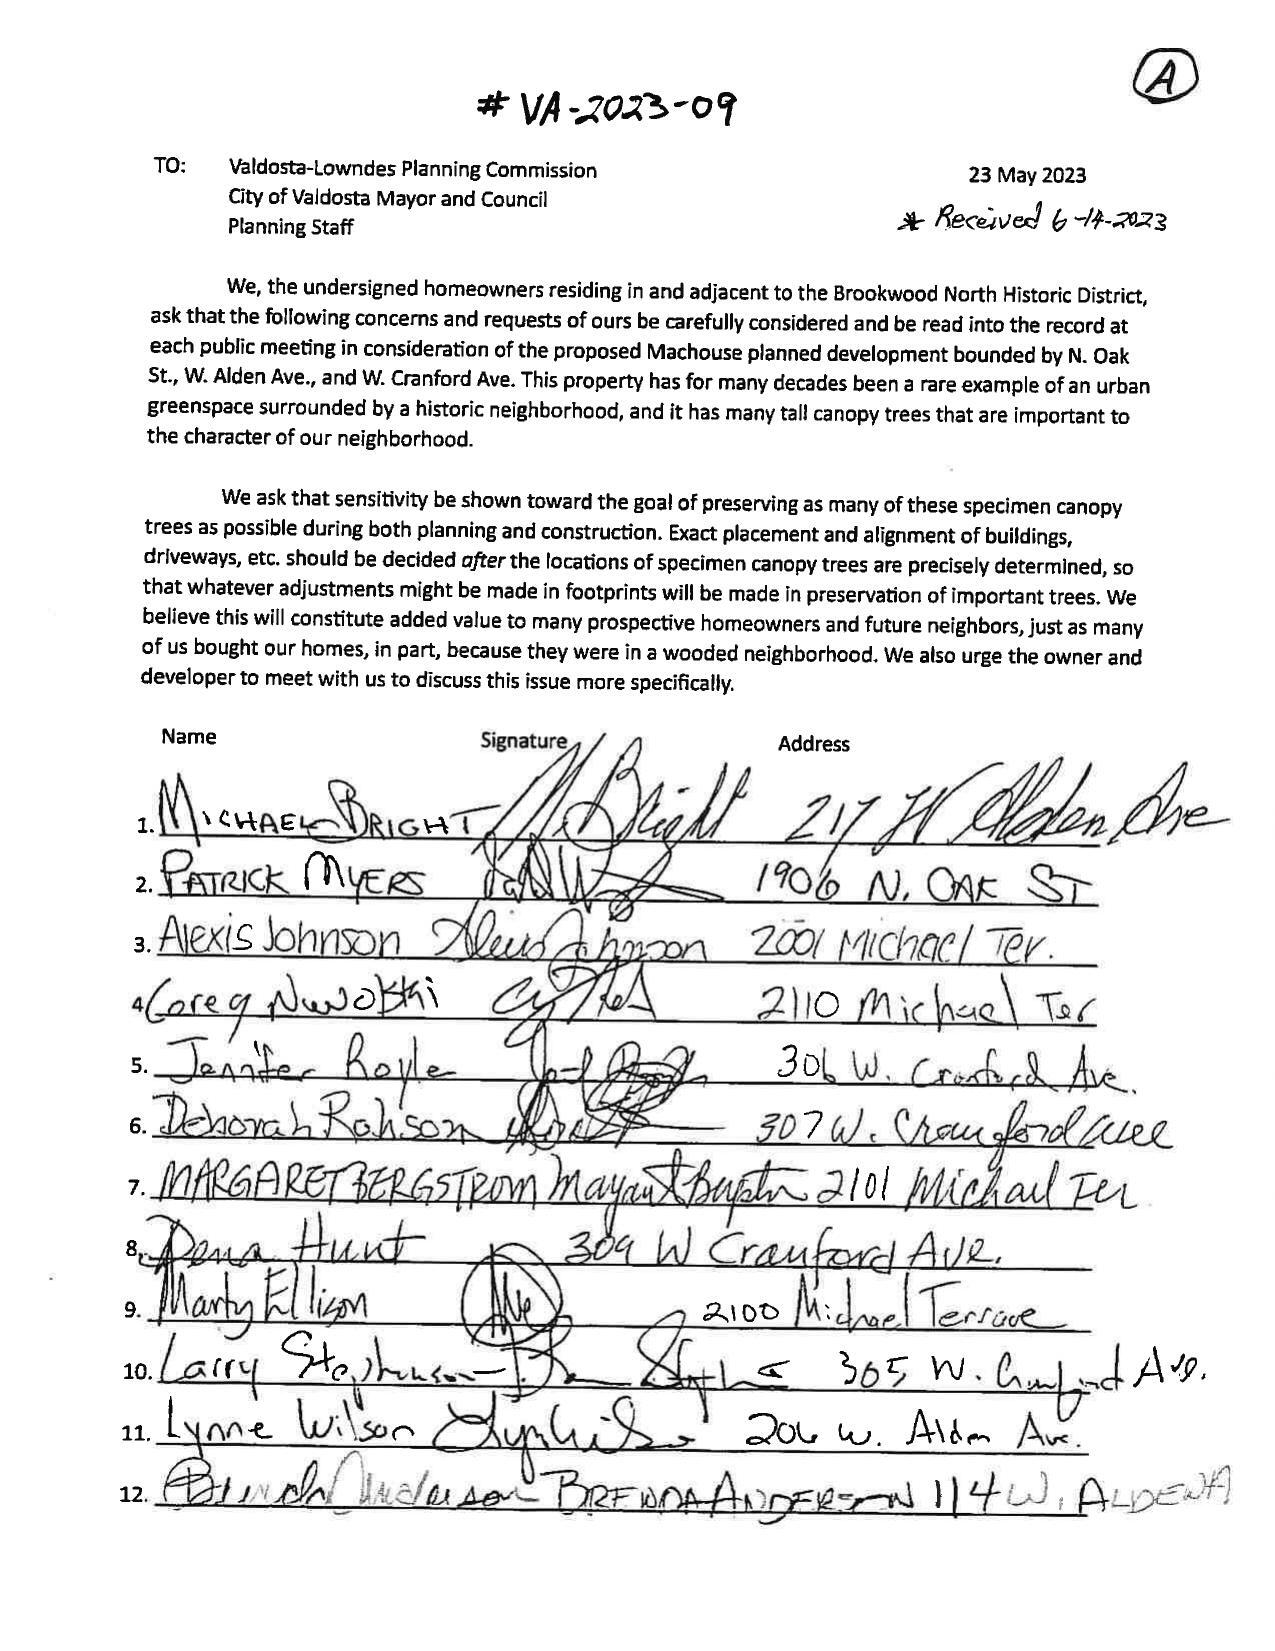 A
# VA-2023-09
TO: Valdosta-Lowndes Planning Commission 23 May 2023
City of Valdosta Mayor and Council
Planning Staff * Received 6-14-2023
We, the undersigned homeowners residing in and adjacent to the Brookwood North Historic District,
ask that the following concerns and requests of ours be carefully considered and be read into the record at
each public meeting in consideration of the proposed Machouse planned development bounded by N. Oak
St., W. Alden Ave., and W. Cranford Ave. This property has for many decades been a rare example of an urban
greenspace surrounded by a historic neighborhood, and it has many tall canopy trees that are important to
the character of our neighborhood.
We ask that sensitivity be shown toward the goal of preserving as many of these specimen canopy
trees as possible during both planning and construction. Exact placement and alignment of buildings,
driveways, etc. should be decided after the locations of specimen canopy trees are precisely determined, so
that whatever adjustments might be made in footprints will be made in preservation of important trees. We
believe this will constitute added value to many prospective homeowners and future neighbors, just as many
of us bought our homes, in part, because they were in a wooded neighborhood. We also urge the owner and
developer to meet with us to discuss this issue more specifically.
Name Signature Address
1. MICHAEL BRIGHT M Bright 217 W Alden Ave
2. PATRICK MYERS 1906 N. OAK ST
3. Alexis Johnson Alexis Johnson 2001 Michael Ter.
4 2110 Michael Ter
5. Jennifer Royle 306 W. Cranford Ave.
6. Deborah Robison 307 W.
7. MARGARET BERGSTROM 2101 Michael Ter
8. Dena Hunt 309 W Cranford AVE.
9. Marty Ellison 2100 Michael Terrace
10. Larry Stephenson 305 W. Cranford Ave.
11. Lynne Wilson 206 W. Alden Ave.
12. Brenda Anderson BRENDA ANDERSON 114 W. ALDEN